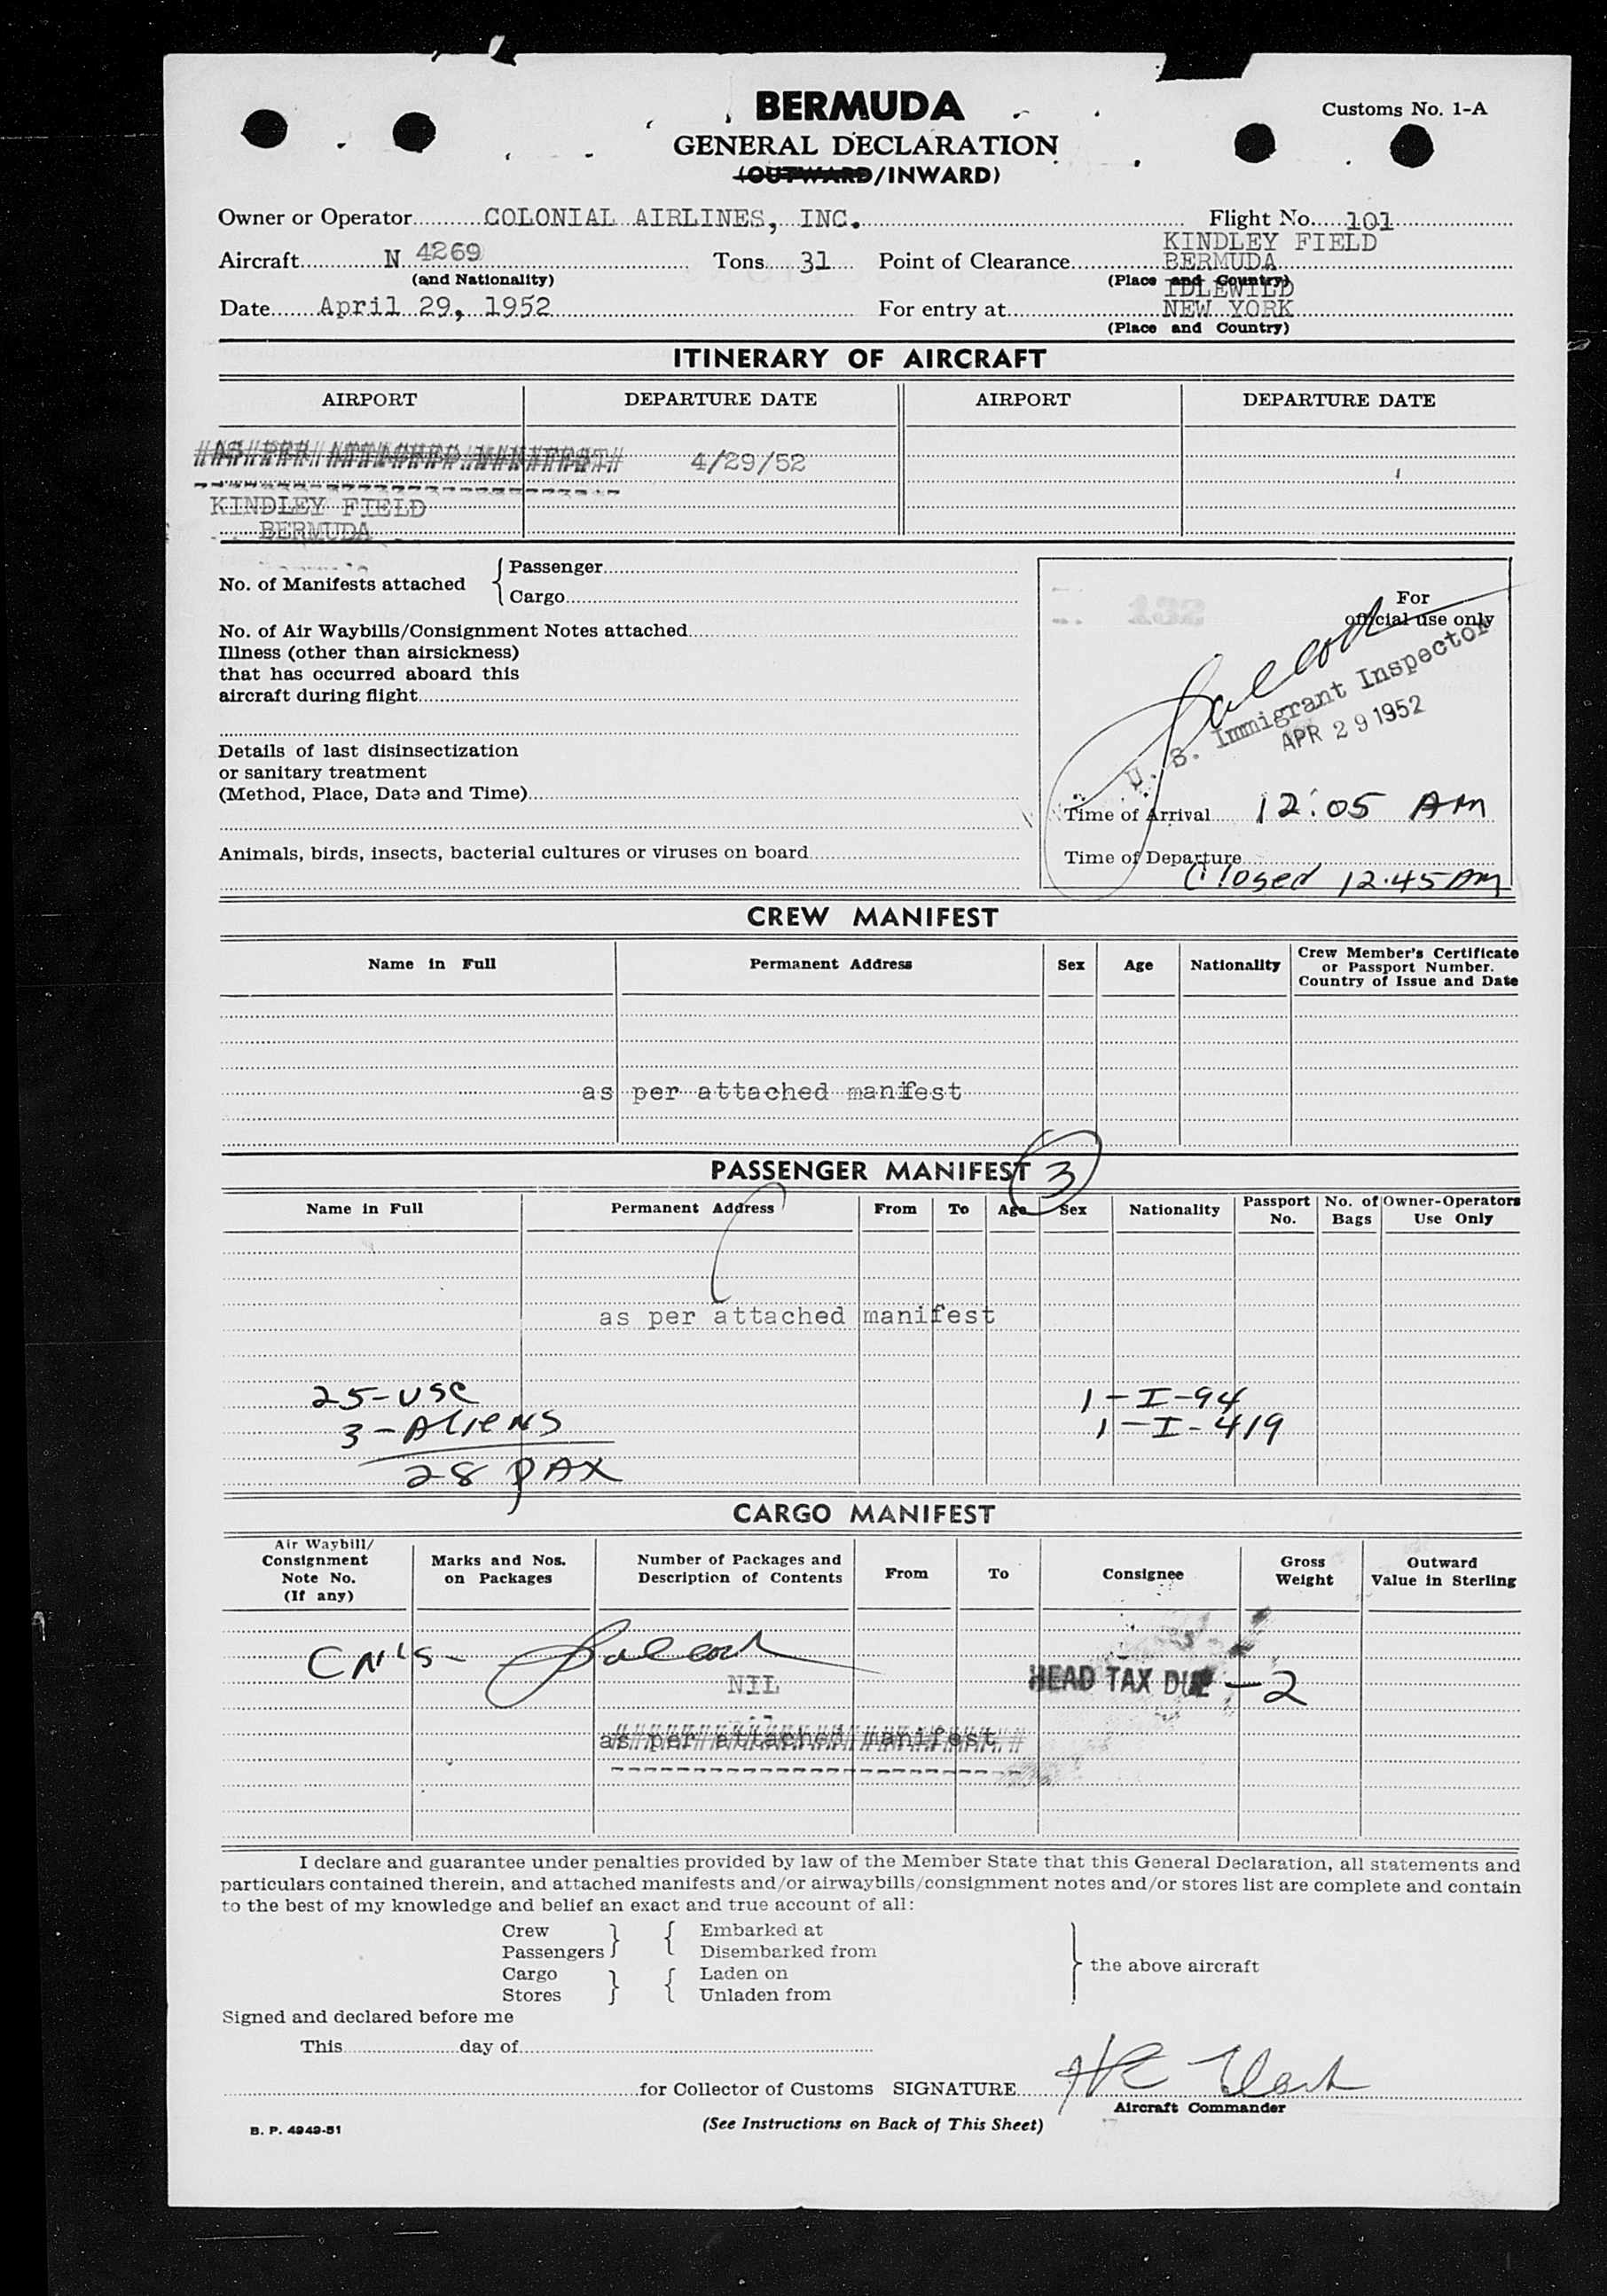 BERMUDA
Customs No. 1-A
GENERAL DECLARATION
(OUTWARD/INWARD)
Owner or Operator COLONIAL AIRLINES, INC. Flight No. 101
KINDLEY FIELD
Aircraft N 4269 Tons 31 Point of Clearance BERMUDA
(and Nationality) (Place and Country)
IDLEWILD
Date April 29, 1952 For entry at NEW YORK
(Place and Country)
ITINERARY OF AIRCRAFT
AIRPORT DEPARTURE DATE AIRPORT DEPARTURE DATE
AS PER ATTACHED MANIFEST 4/29/52
KINDLEY FIELD
BERMUDA
No. of Manifests attached { Passenger
Cargo
No. of Air Waybills/Consignment Notes attached
Illness (other than airsickness)
that has occurred aboard this
aircraft during flight
Details of last disinsectization
or sanitary treatment
(Method, Place, Date and Time)
Animals, birds, insects, bacterial cultures or viruses on board
132
For
official use only
U. S. Immigrant Inspector
APR 29 1952
Time of Arrival 12:05 AM
Time of Departure
Closed 12.45 AM
CREW MANIFEST
Name in Full Permanent Address Sex Age Nationality Crew Member's Certificate
or Passport Number.
Country of Issue and Date
as per attached manifest
PASSENGER MANIFEST 3
Name in Full Permanent Address From To Age Sex Nationality Passport No. No. of Bags Owner-Operators Use Only
as per attached manifest
25-USC 1-I-94
3-ALIENS 1-I-419
28 PAX
CARGO MANIFEST
Air Waybill/
Consignment
Note No.
(If any)
Marks and Nos.
on Packages
Number of Packages and
Description of Contents
From To Consignee
Gross
Weight
Outward
Value in Sterling
NIL
HEAD TAX DUE -2
as per attached manifest
I declare and guarantee under penalties provided by law of the Member State that this General Declaration, all statements and
particulars contained therein, and attached manifests and/or airwaybills/consignment notes and/or stores list are complete and contain
to the best of my knowledge and belief an exact and true account of all:
Crew } { Embarked at
Passengers } { Disembarked from
Cargo } { Laden on } the above aircraft
Stores } { Unladen from
Signed and declared before me
This day of
for Collector of Customs SIGNATURE
Aircraft Commander
B. P. 4949-51
(See Instructions on Back of This Sheet)